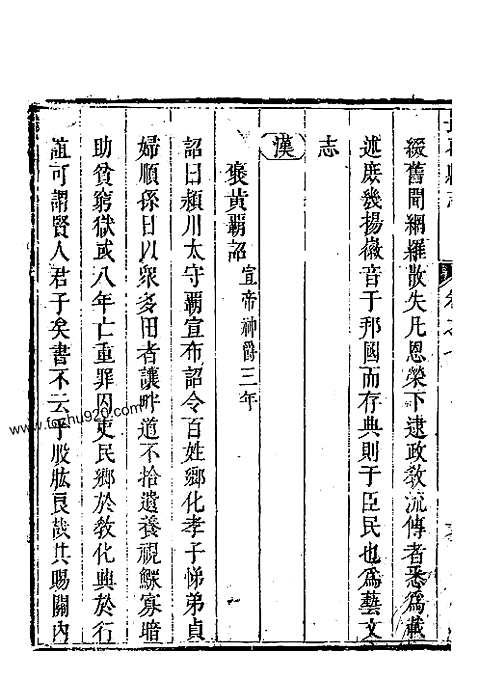 綴舊聞網羅散失凡恩榮下逮政教流傳者悉爲載
述庶幾揚徽音于邦國而存典則于臣民也爲藝文
志
漢
褒黃霸詔 宣帝神爵三年
詔曰潁川太守霸宣布詔令百姓鄉化孝子悌弟貞
婦順孫日以衆多田者讓畔道不拾遺養視鰥寡暗
助貧窮獄或八年亡重罪囚吏民鄉於教化興於行
誼可謂賢人君子矣書不云乎股肱良哉其賜關內
www.foshu920.com